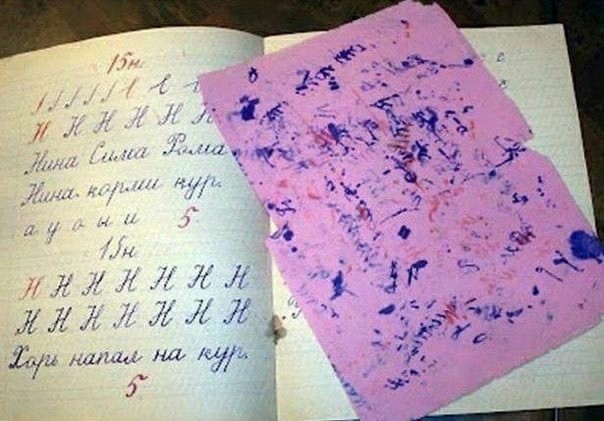 15н.
Н Н Н Н Н Н
Нина Сима Рома
Нина корми кур.
а у о ы и 5
15н
Н Н Н Н Н Н Н
Н Н Н Н Н Н Н
Хорь напал на кур.
5